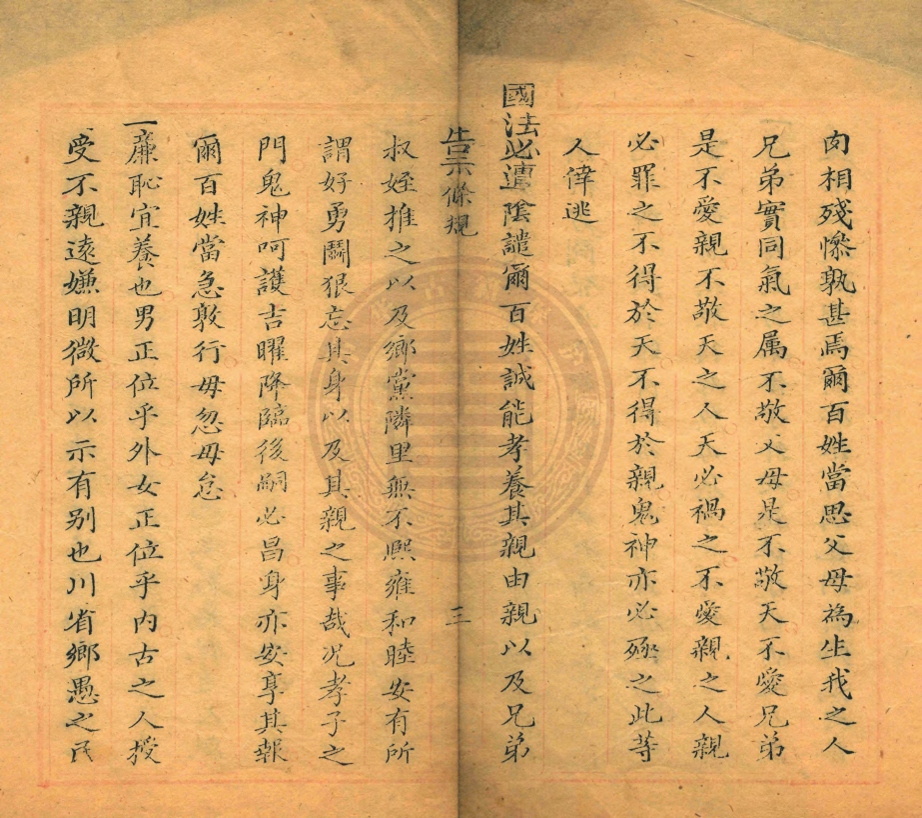 肉相殘慘孰甚焉爾百姓當思父母為生我之人
兄弟實同氣之属不敬父母是不敬天不愛兄弟
是不愛親不敬天之人天必禍之不愛親之人親
必罪之不得於天不得於親鬼神亦必殛之此等
人倖逃
國法必遭陰譴爾百姓誠能孝養其親由親以及兄弟
告示條規 三
叔姪推之以及鄉黨隣里無不熈雍和睦安有所
謂好勇鬭狠忘其身以及其親之事哉况孝子之
門鬼神呵護吉曜降臨後嗣必昌身亦安享其報
爾百姓當急敦行毋忽毋怠
一廉恥宜養也男正位乎外女正位乎內古之人授
受不親遠嫌明微所以示有别也川省鄉愚之民